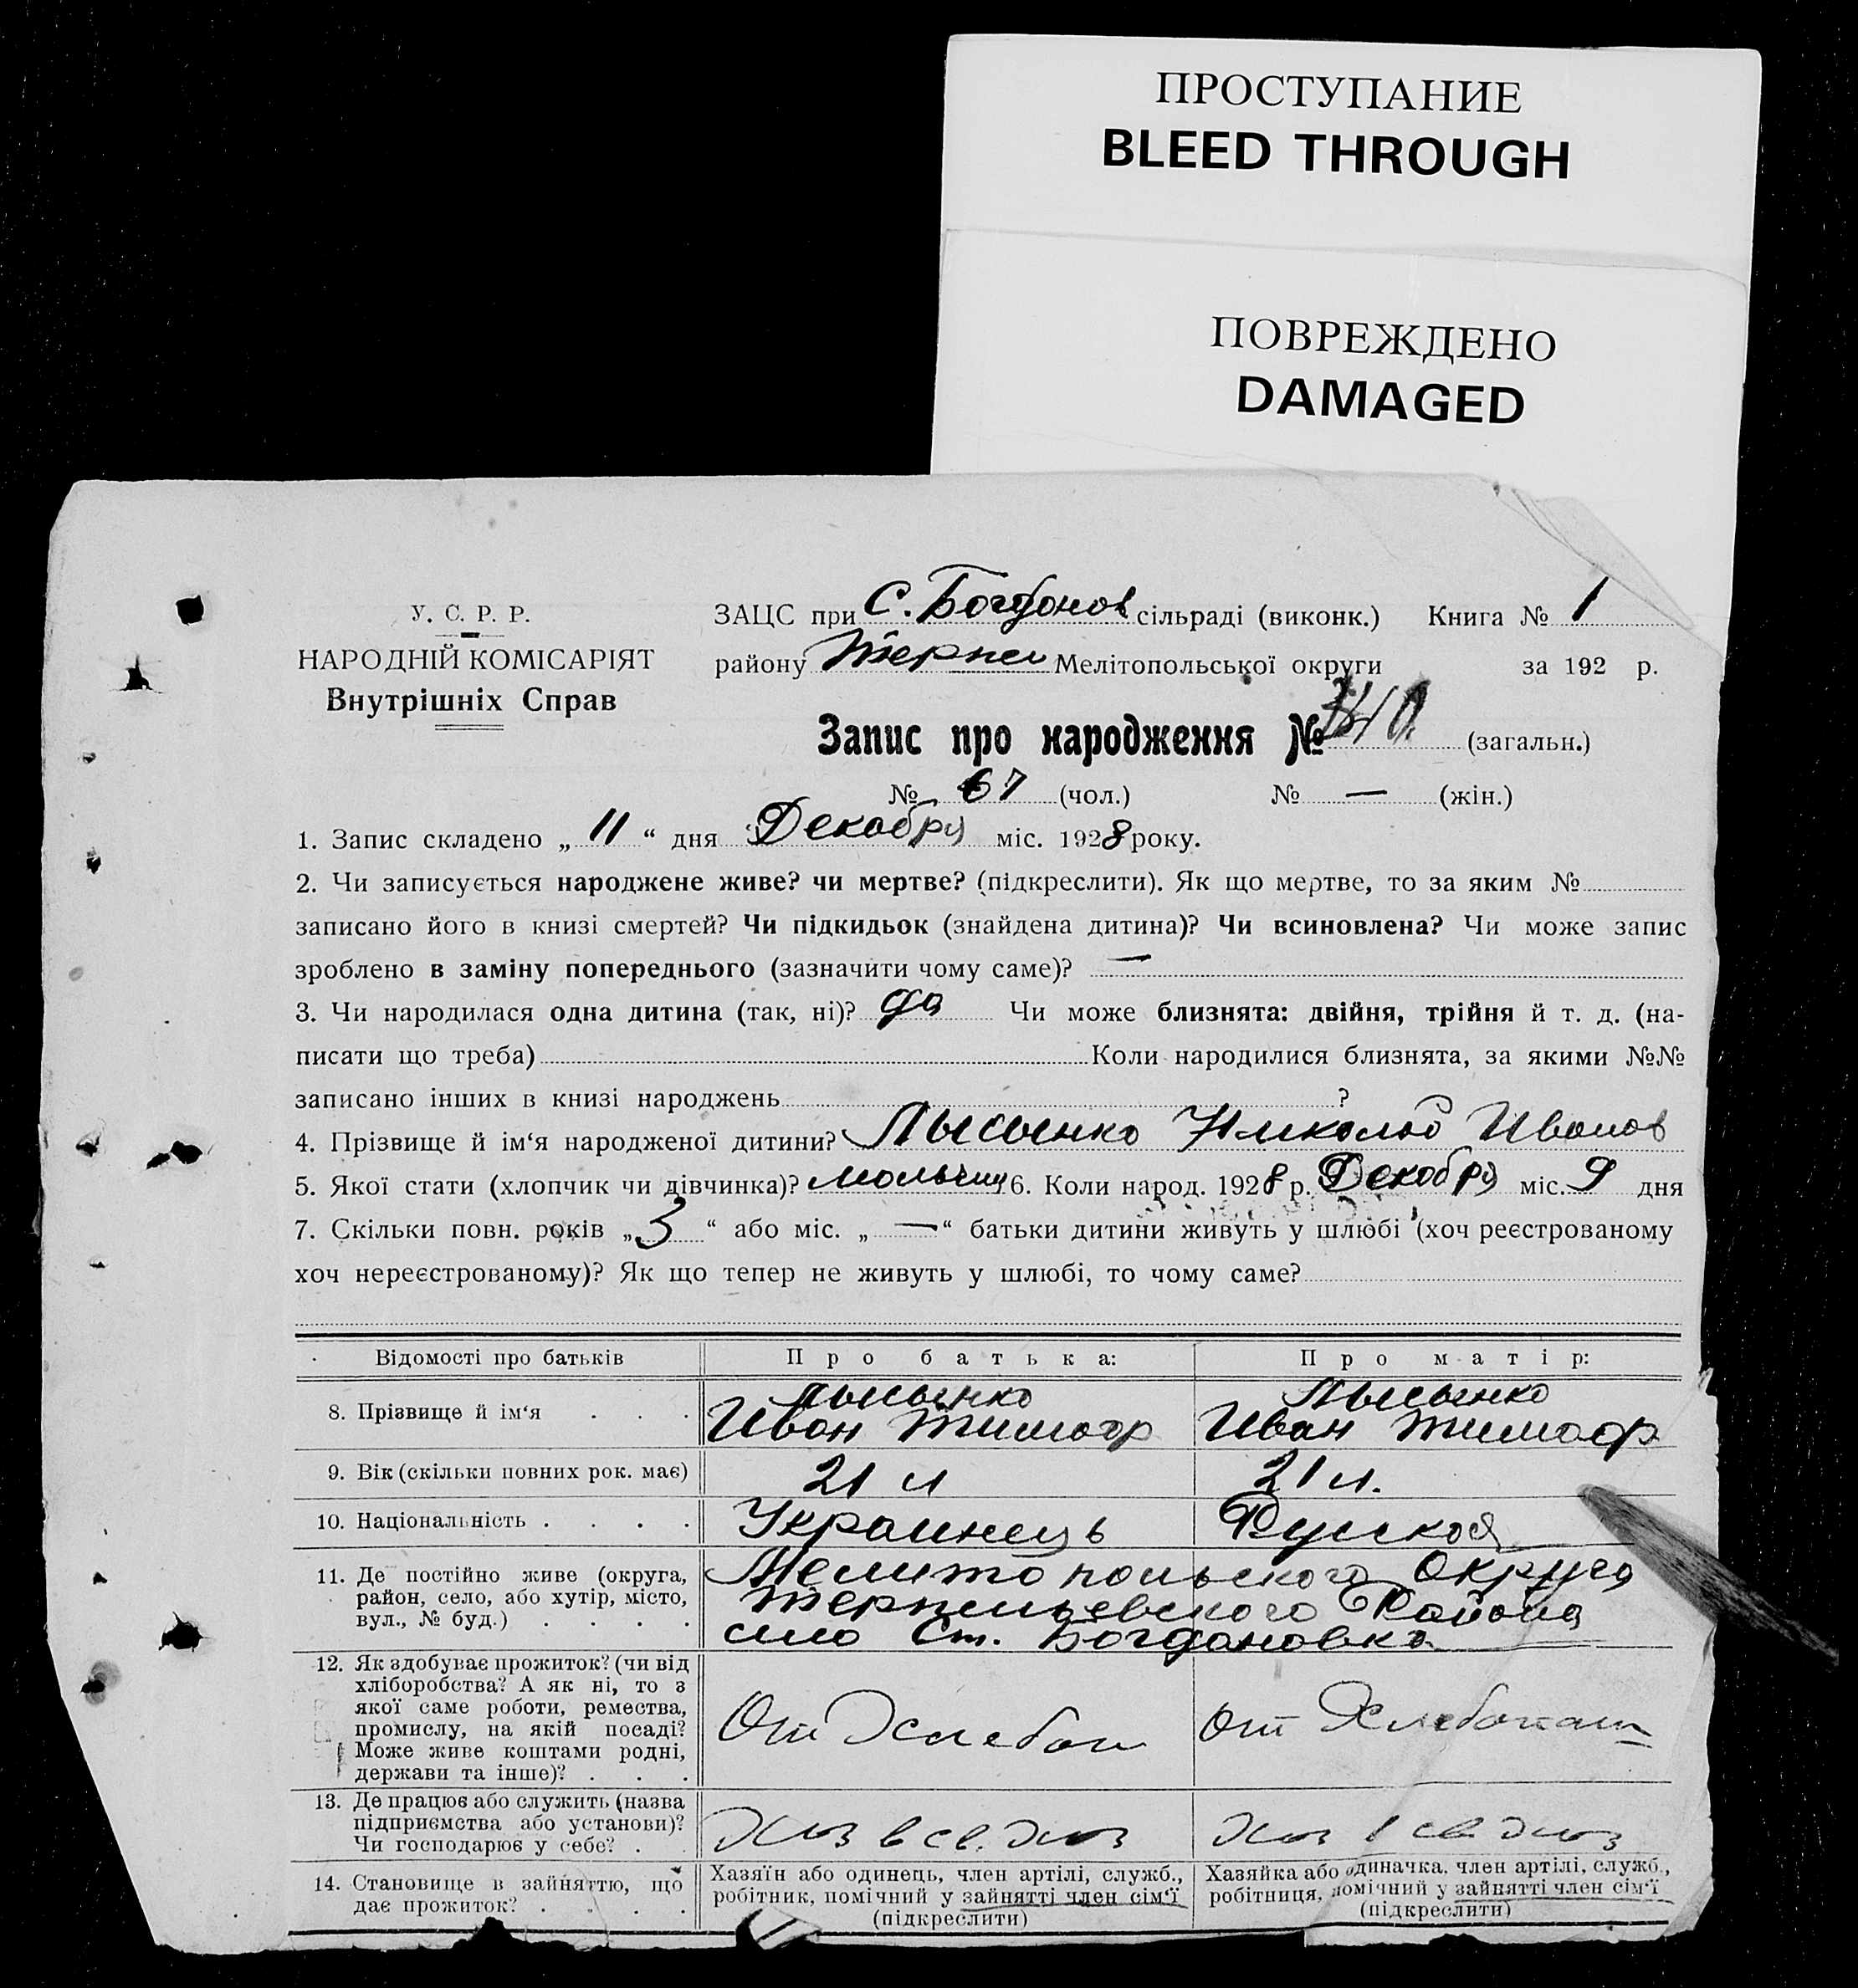 ПРОСТУПАНИЕ
BLEED THROUGH
ПОВРЕЖДЕНО
DAMAGED
У. С. Р. Р.
НАРОДНІЙ КОМІСАРІЯТ
Внутрішніх Справ
ЗАЦС при С. Богдонов сільраді (виконк.) Книга № 1
району Терпел Мелітопольської округи за 192 р.
Запис про народження № (загальн.)
№ 67 (чол.) № — (жін.)
1. Запис складено „ 11 “ дня Декабря міс. 1928 року.
2. Чи записується народжене живе? чи мертве? (підкреслити). Як що мертве, то за яким №
записано його в книзі смертей? Чи підкидьок (знайдена дитина)? Чи всиновлена? Чи може запис
зроблено в заміну попереднього (зазначити чому саме)? —
3. Чи народилася одна дитина (так, ні)? да Чи може близнята: двійня, трійня й т. д. (на-
писати що треба) Коли народилися близнята, за якими №№
записано інших в книзі народжень ?
4. Прізвище й ім‘я народженої дитини? Лысынко Николай Иванов
5. Якої стати (хлопчик чи дівчинка)? мальчик 6. Коли народ. 1928 р. Декабря міс. 9 дня
7. Скільки повн. років „ 3 “ або міс. „ — “ батьки дитини живуть у шлюбі (хоч реєстрованому
хоч нереєстрованому)? Як що тепер не живуть у шлюбі, то чому саме?
Відомості про батьків Про батька: Про матір:
8. Прізвище й ім‘я . . . Лысынко Иван Тимоф Лысынко Иван Тимоф
9. Вік (скільки повних рок. має) 21 л 21 л.
10. Національність . . . . Украинець Руская
11. Де постійно живе (округа, Мелитопольского Округа
район, село, або хутір, місто, Терпельевского Района
вул., № буд.) . . . . село Ст. Богдановка
12. Як здобуває прожиток? (чи від
хліборобства? А як ні, то з
якої саме роботи, ремества,
промислу, на якій посаді? От Хлебоп От Хлебопаш
Може живе коштами родні,
держави та інше)? . . .
13. Де працює або служить (назва
підприємства або установи)?
Чи господарює у себе? . Хоз в св. хоз Хоз в св хоз
14. Становище в зайняттю, що Хазяїн або одинець, член артілі, служб., Хазяйка або одиначка, член артілі, служб.,
дає прожиток? . . . . робітник, помічний у зайнятті член сім‘ї робітниця, помічний у зайнятті член сім‘ї
(підкреслити) (підкреслити)